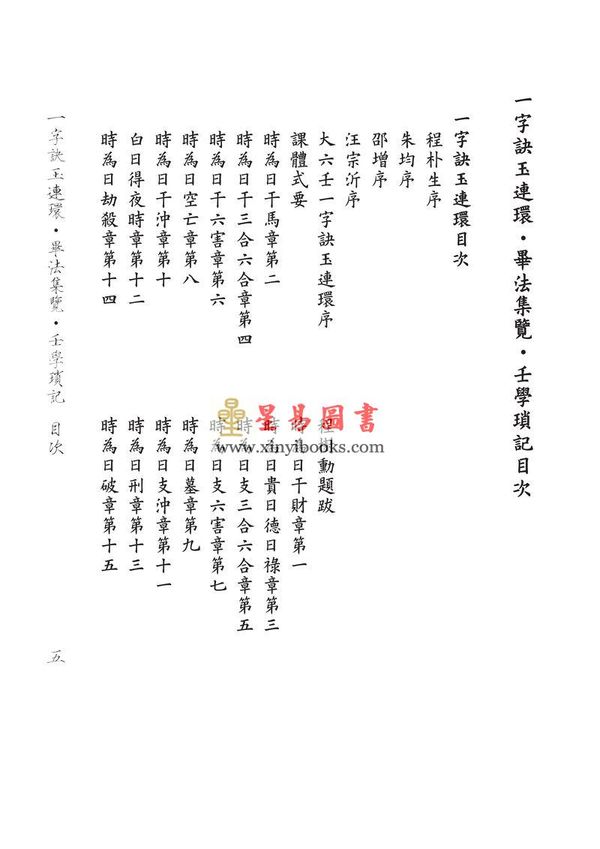 一字訣玉連環・畢法集覽・壬學瑣記目次
一字訣玉連環目次
程朴生序
朱均序
邵增序
汪宗沂序
大六壬一字訣玉連環序
程樹勳題跋
課體式要
時為日干財章第一
時為日干馬章第二
時為日貴日德日祿章第三
時為日干三合六合章第四
時為日支三合六合章第五
時為日干六害章第六
時為日支六害章第七
時為日空亡章第八
時為日墓章第九
時為日干沖章第十
時為日支沖章第十一
白日得夜時章第十二
時為日刑章第十三
時為日劫殺章第十四
時為日破章第十五
一字訣玉連環・畢法集覽・壬學瑣記 目次
五
星易圖書
www.xinyibooks.com